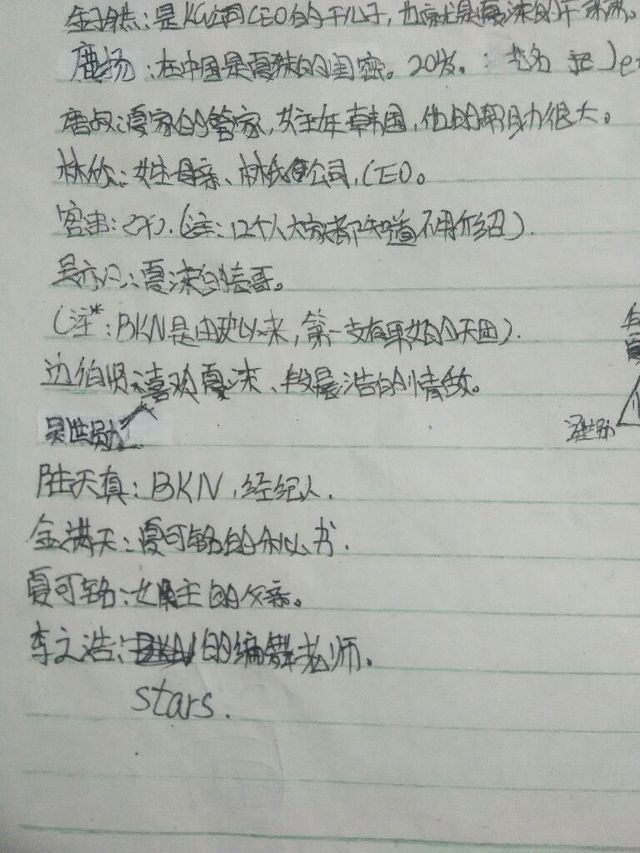 是KN公司CEO的干儿子,也就是夏沫的干
鹿扬:在中国是夏沫的闺密。20岁。:艺名
唐叔:夏家的管家,女主在韩国,他的帮助很大。
林欣:女主母亲、林氏公司,CEO。
客串:(注:12个人大家都知道不用介绍).
吴亦凡:夏沫的表哥。
(注*:BKN是出道以来,第一支有男女的天团).
边伯贤:喜欢夏沫、段晨浩的情敌。
吴世勋
陆天真:BKN,经纪人.
金满天:夏可铭的秘书.
夏可铭:女主的父亲。
李文浩:的编舞老师。
stars.